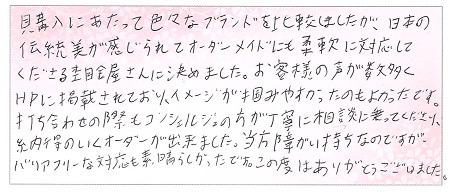 具購入にあたって色々なブランドを比較しましたが、日本の
伝統美が感じられてオーダーメイドにも柔軟に対応して
くださる杢目金屋さんに決めました。お客様の声が数多く
HPに掲載されており、イメージが掴みやすかったのもよかったです。
打ち合わせの際もコンシェルジュの方が丁寧に相談に乗ってくださり、
納得のいくオーダーが出来ました。当方障がい持ちなのですが、
バリアフリーな対応も素晴らしかったです。この度はありがとうございました。